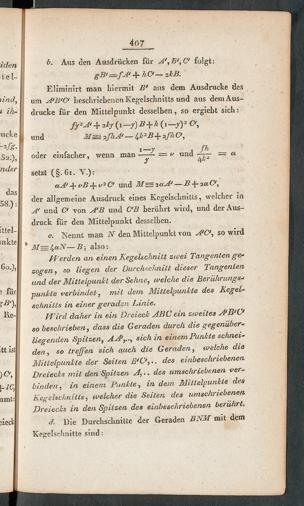 407
b. Aus den Ausdrücken für A', B', C' folgt:
gB' = fA' + hC' — 2kB.
Eliminirt man hiermit B' aus dem Ausdrucke des
um A'B'C' beschriebenen Kegelschnitts und aus dem Aus-
drucke für den Mittelpunkt desselben, so ergiebt sich:
und M ≡ 2fhA' — 4k²B + 2fhC',
oder einfacher, wenn man (1—y)/y = v und fh/4k² = α
setzt (§. 61. V.):
αA' + vB + v²C' und M ≡ 2αA' — B + 2αC',
der allgemeine Ausdruck eines Kegelschnitts, welcher in
A' und C' von A'B und C'B berührt wird, und der Aus-
druck für den Mittelpunkt desselben.
c. Nennt man N den Mittelpunkt von A'C', so wird
M ≡ 4αN — B; also:
Werden an einen Kegelschnitt zwei Tangenten ge-
zogen, so liegen der Durchschnitt dieser Tangenten
und der Mittelpunkt der Sehne, welche die Berührungs-
punkte verbindet, mit dem Mittelpunkte des Kegel-
schnitts in einer geraden Linie.
Wird daher in ein Dreieck ABC ein zweites A'B'C'
so beschrieben, dass die Geraden durch die gegenüber-
liegenden Spitzen, AA',.., sich in einem Punkte schnei-
den, so treffen sich auch die Geraden, welche die
Mittelpunkte der Seiten B'C',.. des einbeschriebenen
Dreiecks mit den Spitzen A,.. des umschriebenen ver-
binden, in einem Punkte, in dem Mittelpunkte des
Kegelschnitts, welcher die Seiten des umschriebenen
Dreiecks in den Spitzen des einbeschriebenen berührt.
d. Die Durchschnitte der Geraden BNM mit dem
Kegelschnitte sind: